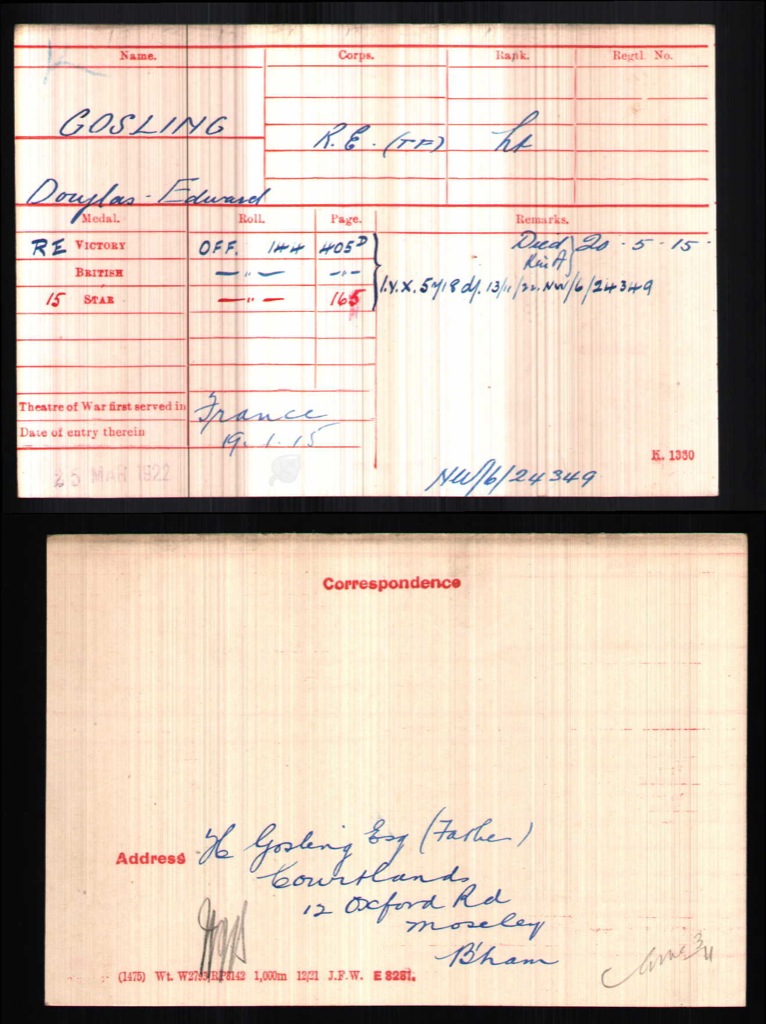 Name. Corps. Rank. Regtl. No.
GOSLING R.E. (TF) Lt
Douglas Edward
Medal. Roll. Page. Remarks.
RE VICTORY OFF. 144 405D Died 20-5-15
BRITISH —"— —"—
15 STAR —"— 165 I.V.X. 5718 d/. 13/11/22. NW/6/24349
Theatre of War first served in France
Date of entry therein 19.1.15
K. 1380
25 MAR 1922
NW/6/24349
Correspondence
Address H Gosling Esq (Father)
Courtlands
12 Oxford Rd
Moseley
B'ham
(1475) Wt. W2793/RP8142 1,000m 12/21 J.F.W. E 8281.